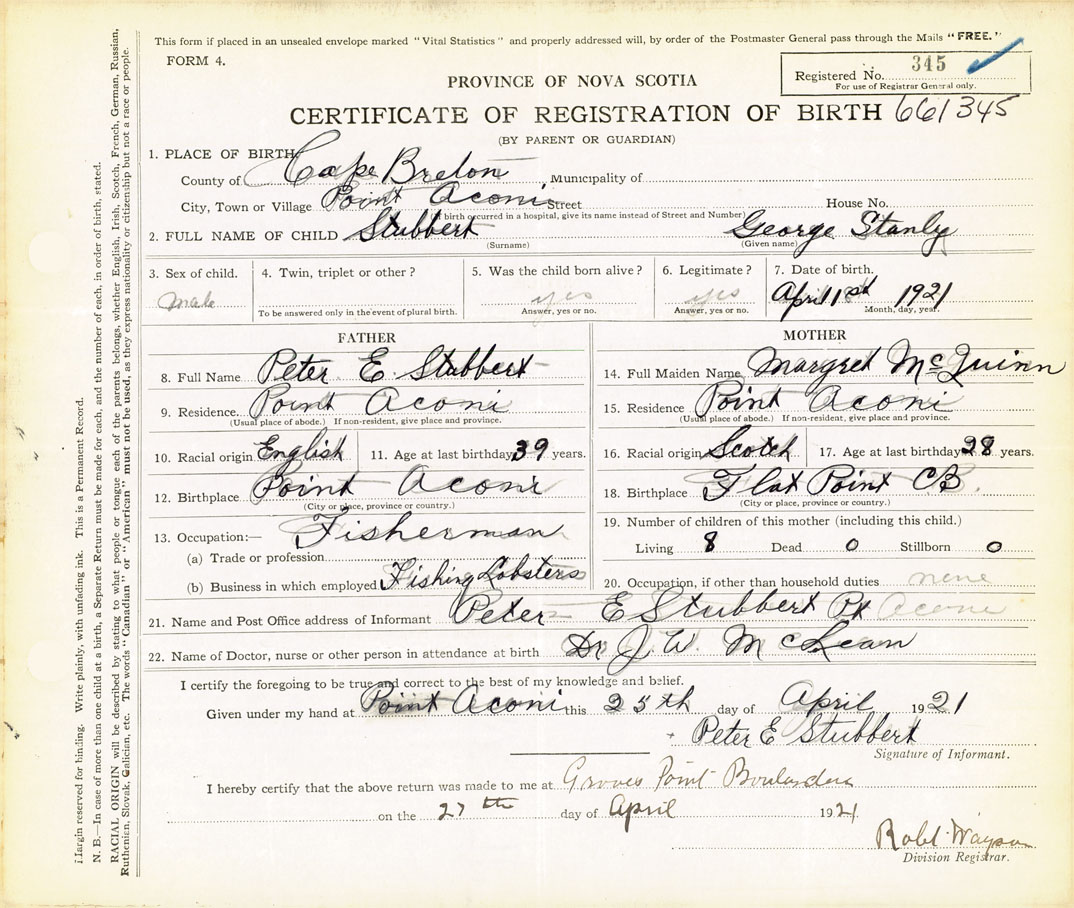 This form if placed in an unsealed envelope marked "Vital Statistics" and properly addressed will, by order of the Postmaster General pass through the Mails "FREE."
FORM 4.
Registered No. 345
For use of Registrar General only.
PROVINCE OF NOVA SCOTIA
CERTIFICATE OF REGISTRATION OF BIRTH 661345
(BY PARENT OR GUARDIAN)
1. PLACE OF BIRTH
County of Cape Breton Municipality of
City, Town or Village Point Aconi Street House No.
(If birth occurred in a hospital, give its name instead of Street and Number)
2. FULL NAME OF CHILD Stubbert George Stanly
(Surname) (Given name)
3. Sex of child. 4. Twin, triplet or other? 5. Was the child born alive? 6. Legitimate? 7. Date of birth.
male yes yes April 1st 1921
To be answered only in the event of plural birth. Answer, yes or no. Answer, yes or no. Month, day, year.
FATHER
8. Full Name Peter E Stubbert
9. Residence. Point Aconi
(Usual place of abode.) If non-resident, give place and province.
10. Racial origin English 11. Age at last birthday 39 years.
12. Birthplace Point Aconi
(City or place, province or country.)
13. Occupation:— Fisherman
(a) Trade or profession
(b) Business in which employed Fishing Lobsters
MOTHER
14. Full Maiden Name Margret McQuinn
15. Residence Point Aconi
(Usual place of abode.) If non-resident, give place and province.
16. Racial origin Scotch 17. Age at last birthday 28 years.
18. Birthplace Flat Point CB.
(City or place, province or country.)
19. Number of children of this mother (including this child.)
Living 8 Dead 0 Stillborn 0
20. Occupation, if other than household duties none
21. Name and Post Office address of Informant Peter E Stubbert Pt Aconi
22. Name of Doctor, nurse or other person in attendance at birth Dr J. W. McLean
I certify the foregoing to be true and correct to the best of my knowledge and belief.
Given under my hand at Point Aconi this 25th day of April 1921
Peter E Stubbert
Signature of Informant.
I hereby certify that the above return was made to me at Groves Point Boularderie
on the 27th day of April 1921
Robt. Wayson
Division Registrar.
Margin reserved for binding. Write plainly, with unfading ink. This is a Permanent Record.
N. B.—In case of more than one child at a birth, a Separate Return must be made for each, and the number of each, in order of birth, stated.
RACIAL ORIGIN will be described by stating to what people or tongue each of the parents belongs, whether English, Irish, Scotch, French, German, Russian,
Ruthenian, Slovak, Galician, etc. The words "Canadian" or "American" must not be used, as they express nationality or citizenship but not a race or people.